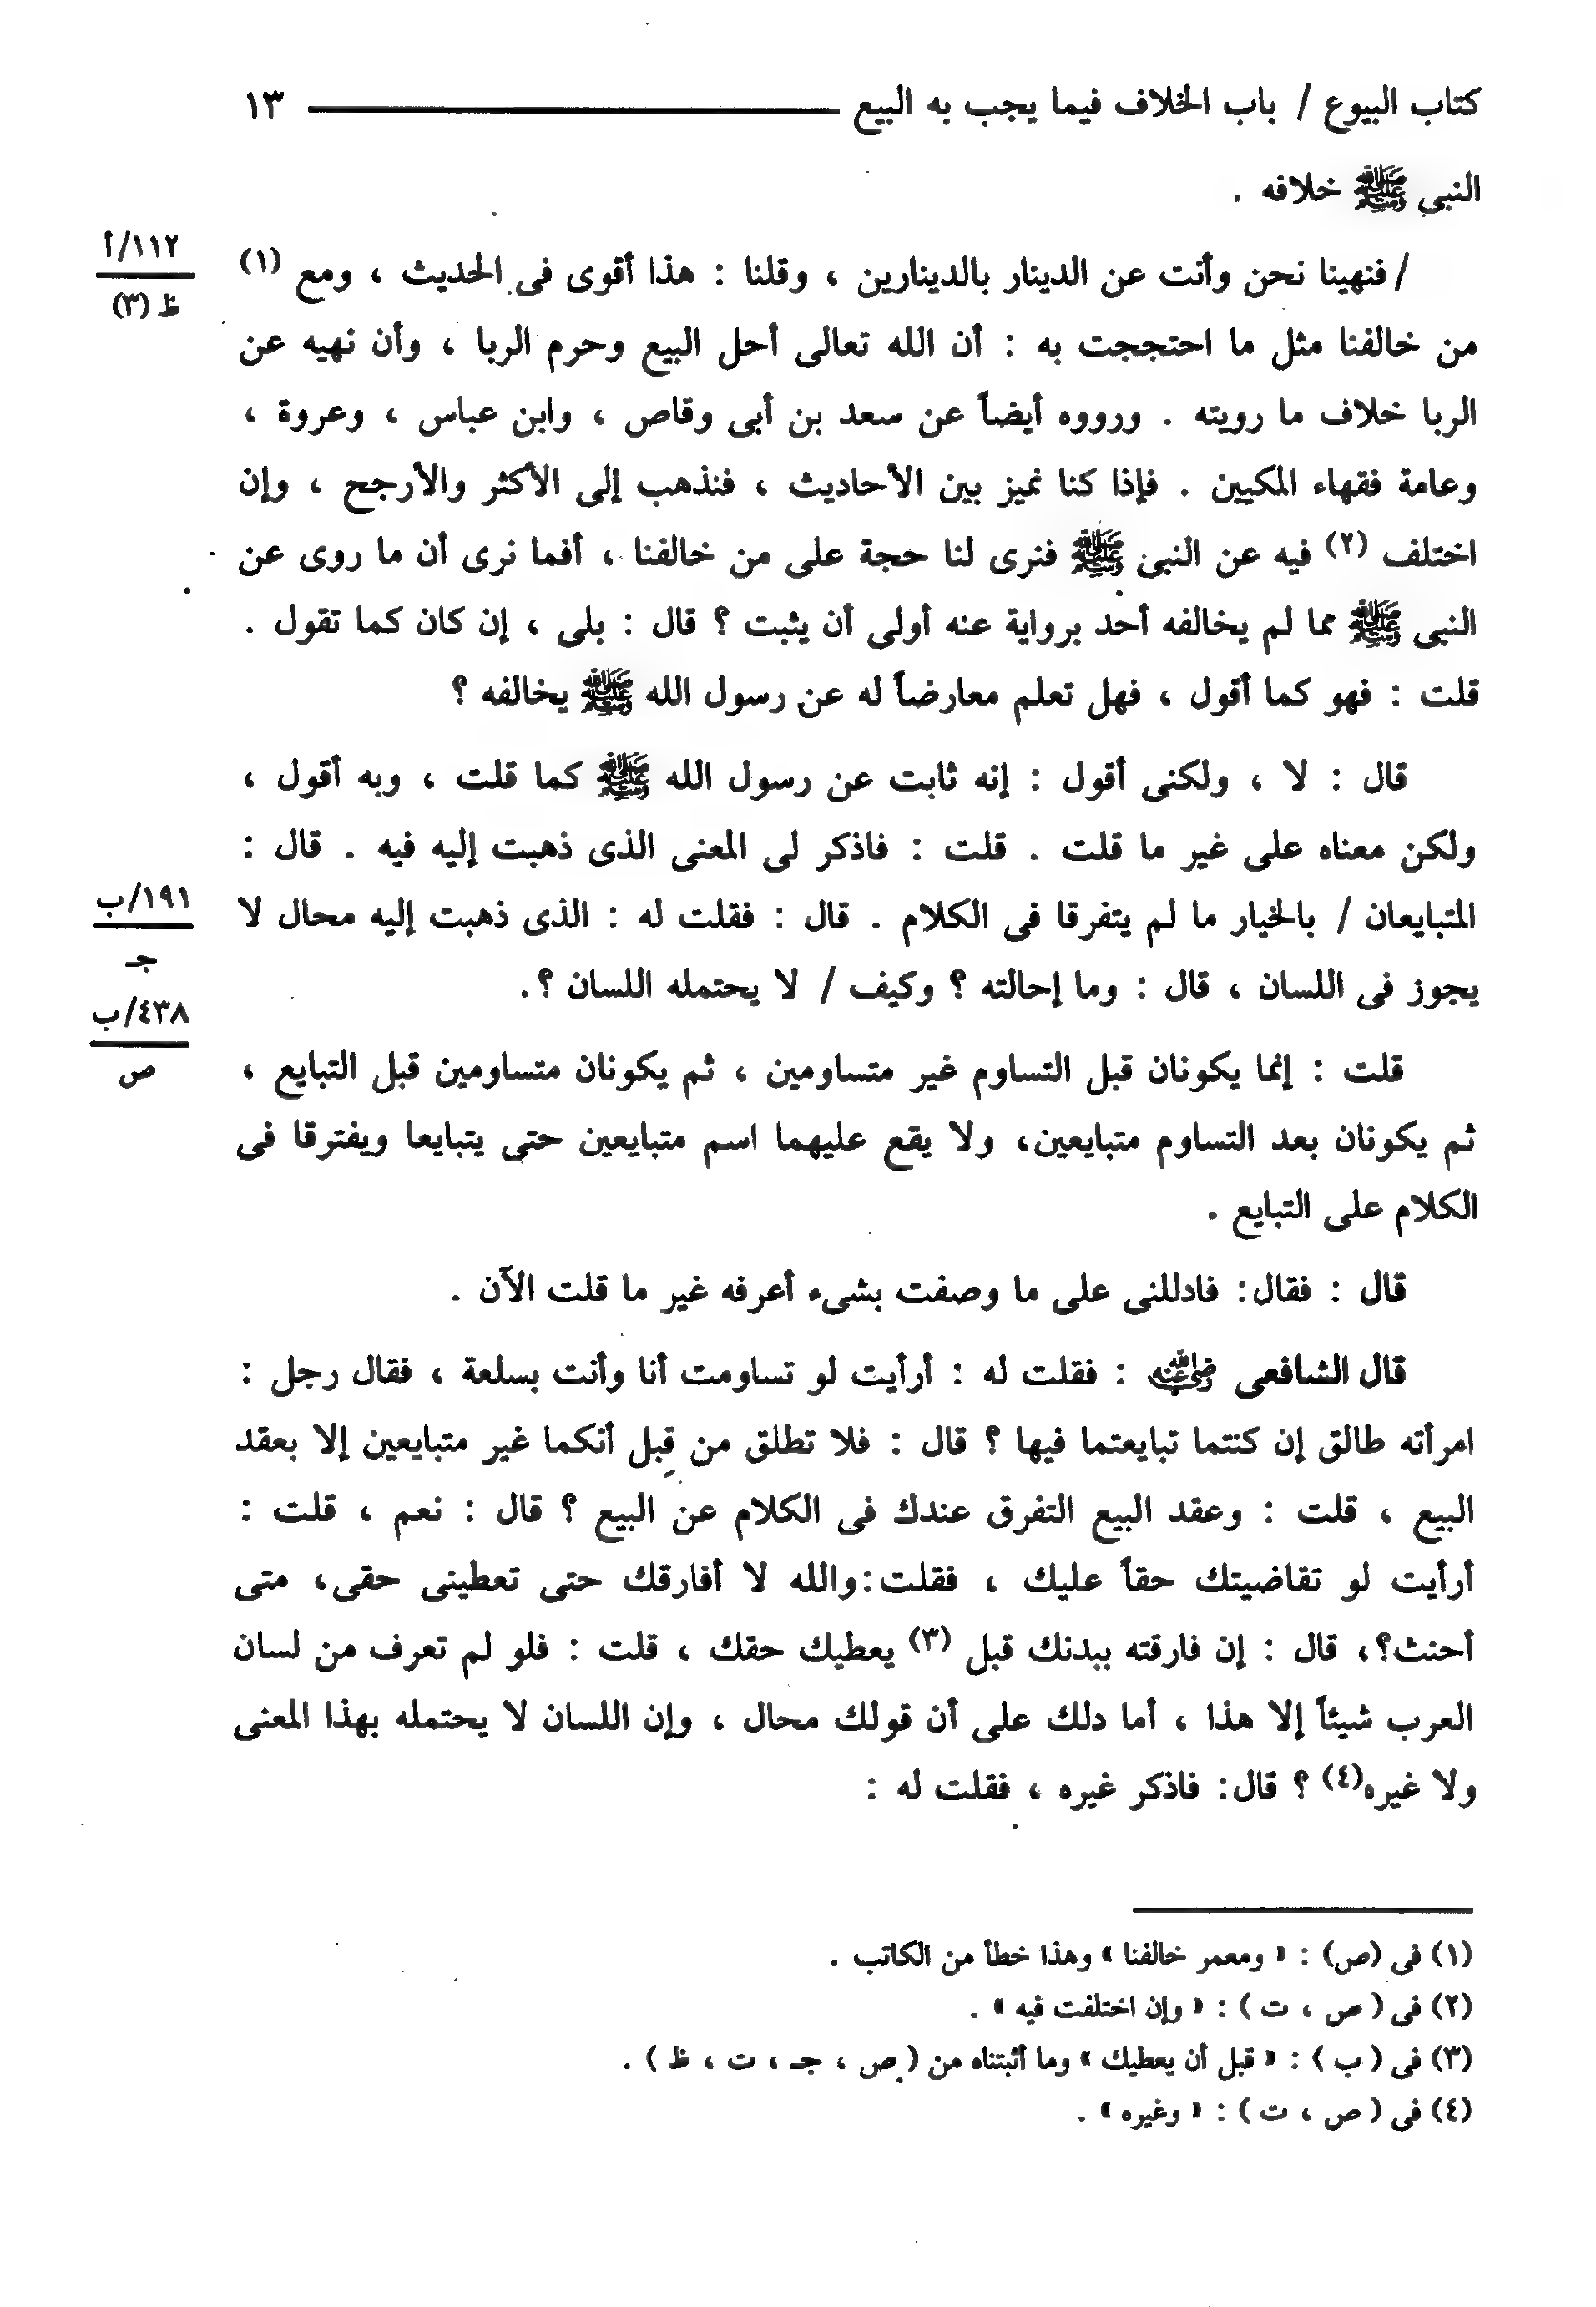 كتاب البيوع / باب الخلاف فيما يجب به البيع ١٣
النبى ﷺ خلافه .
/ فنهينا نحن وأنت عن الدينار بالدينارين ، وقلنا : هذا أقوى فى الحديث ، ومع (١)
١١٢/أ
ظ (٣)
من خالفنا مثل ما احتججت به : أن الله تعالى أحل البيع وحرم الربا ، وأن نهيه عن
الربا خلاف ما رويته . ورووه أيضاً عن سعد بن أبى وقاص ، وابن عباس ، وعروة ،
وعامة فقهاء المكيين . فإذا كنا نميز بين الأحاديث ، فنذهب إلى الأكثر والأرجح ، وإن
اختلف (٢) فيه عن النبى ﷺ فنرى لنا حجة على من خالفنا ، أفما نرى أن ما روى عن
النبى ﷺ مما لم يخالفه أحد برواية عنه أولى أن يثبت ؟ قال : بلى ، إن كان كما تقول .
قلت : فهو كما أقول ، فهل تعلم معارضاً له عن رسول الله ﷺ يخالفه ؟
قال : لا ، ولكنى أقول : إنه ثابت عن رسول الله ﷺ كما قلت ، وبه أقول ،
ولكن معناه على غير ما قلت . قلت : فاذكر لى المعنى الذى ذهبت إليه فيه . قال :
المتبايعان / بالخيار ما لم يتفرقا فى الكلام . قال : فقلت له : الذى ذهبت إليه محال لا
١٩١/ب
جـ
يجوز فى اللسان ، قال : وما إحالته ؟ وكيف / لا يحتمله اللسان ؟.
٤٣٨/ب
ص
قلت : إنما يكونان قبل التساوم غير متساومين ، ثم يكونان متساومين قبل التبايع ،
ثم يكونان بعد التساوم متبايعين، ولا يقع عليهما اسم متبايعين حتى يتبايعا ويفترقا فى
الكلام على التبايع .
قال : فقال: فادللنى على ما وصفت بشىء أعرفه غير ما قلت الآن .
قال الشافعى رضي الله عنه : فقلت له : أرأيت لو تساومت أنا وأنت بسلعة ، فقال رجل :
امرأته طالق إن كنتما تبايعتما فيها ؟ قال : فلا تطلق من قِبل أنكما غير متبايعين إلا بعقد
البيع ، قلت : وعقد البيع التفرق عندك فى الكلام عن البيع ؟ قال : نعم ، قلت :
أرأيت لو تقاضيتك حقاً عليك ، فقلت:والله لا أفارقك حتى تعطينى حقى، متى
أحنث؟، قال : إن فارقته ببدنك قبل (٣) يعطيك حقك ، قلت : فلو لم تعرف من لسان
العرب شيئاً إلا هذا ، أما دلك على أن قولك محال ، وإن اللسان لا يحتمله بهذا المعنى
ولا غيره(٤) ؟ قال: فاذكر غيره ، فقلت له :
(١) فى (ص) : « ومعمر خالفنا » وهذا خطأ من الكاتب .
(٢) فى ( ص ، ت ) : « وإن اختلفت فيه » .
(٣) فى ( ب ) : « قبل أن يعطيك » وما أثبتناه من ( ص ، جـ ، ت ، ظ ) .
(٤) فى ( ص ، ت ) : « وغيره » .